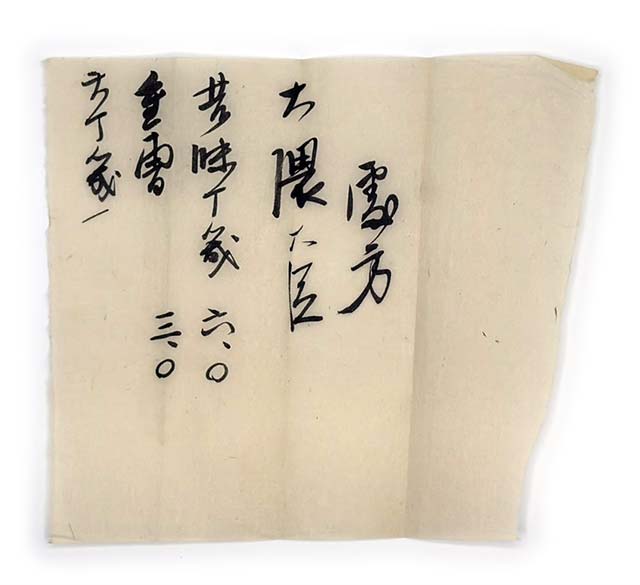 處方
大隈大臣
苦味丁幾 六、〇
重曹 三、〇
丁幾